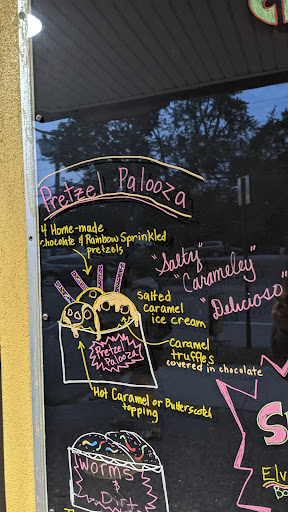 Pretzel Palooza
4 Home-made
chocolate & Rainbow Sprinkled
pretzels
"Salty"
"Carameley"
"Delicioso"
salted
caramel
ice cream
caramel
truffles
covered in chocolate
Pretzel
Palooza
Hot Caramel or Butterscotch
topping
Worms
&
Dirt
Elv